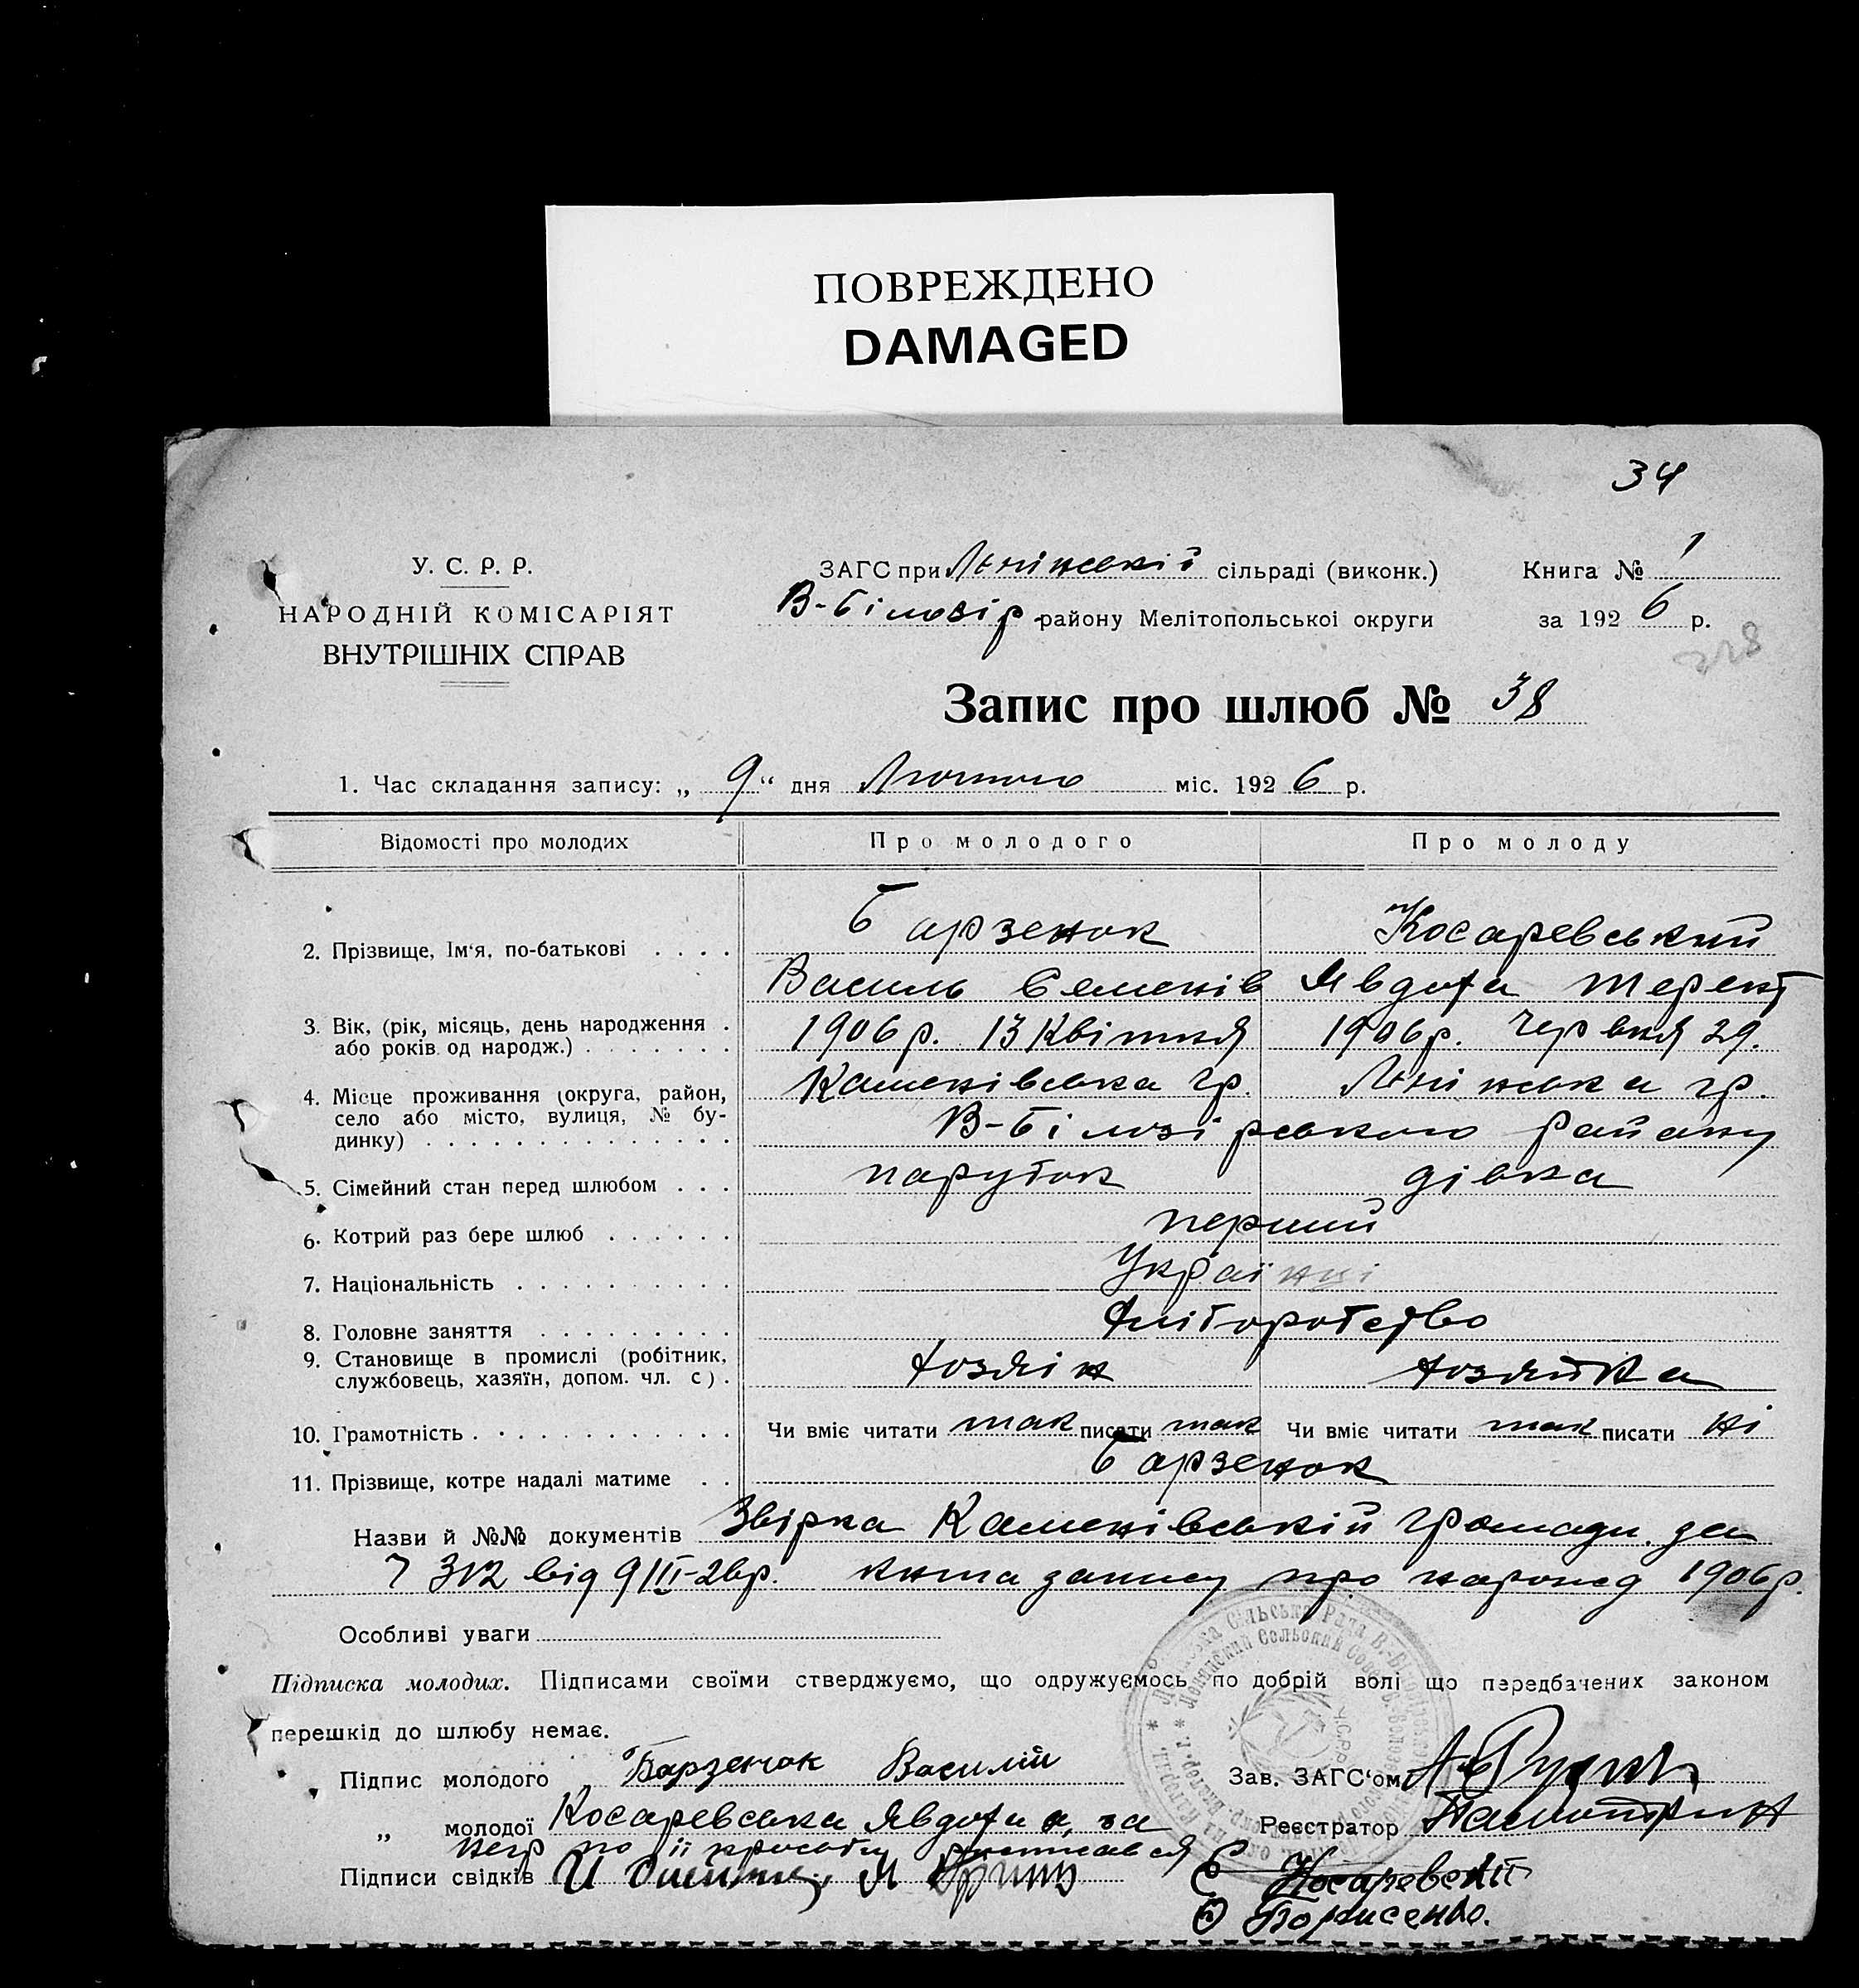 ПОВРЕЖДЕНО
DAMAGED
34
У. С. Р. Р.
НАРОДНІЙ КОМІСАРІЯТ
ВНУТРІШНІХ СПРАВ
ЗАГС при Лєнінській сільраді (виконк.)
В-Білозір району Мелітопольської округи
Книга № 1
за 1926 р.
Запис про шлюб № 38
1. Час складання запису: „ 9 “ дня Лютого міс. 1926 р.
Відомості про молодих Про молодого Про молоду
2. Прізвище, Ім'я, по-батькові . . . . Барзенок Косаревський
Василь Семенів Явдоха Терент
3. Вік, (рік, місяць, день народження . 1906 р. 13 Квітня 1906 р. Червня 29.
або років од народж.) . . . . . . .
4. Місце проживання (округа, район, Каменівська гр. Лєнінська гр.
село або місто, вулиця, № бу-
динку) . . . . . . . . . . . . . . В-Білозірського Району
5. Сімейний стан перед шлюбом . . . парубок дівка
6. Котрий раз бере шлюб . . . . . . перший
7. Національність . . . . . . . . . . Українці
8. Головне заняття . . . . . . . . . Хліборобство
9. Становище в промислі (робітник,
службовець, хазяїн, допом. чл. с) . хозяін хозяйка
10. Грамотність . . . . . . . . . . . . Чи вміє читати так писати так Чи вміє читати так писати ні
11. Прізвище, котре надалі матиме . . Барзенок
Назви й №№ документів Звірка Каменівській громади за
312 від 9/II-26р. книга запису про народ 1906р.
Особливі уваги
Підписка молодих. Підписами своїми стверджуємо, що одружуємось по добрій волі що передбачених законом
перешкід до шлюбу немає.
Підпис молодого Барзенок Василий
Зав. ЗАГС'ом
„ молодої Косаревська Явдоха а, за
Реєстратор
негр по її прозьби росписався
Підписи свідків
Є Косаревский
Ф Борисенко.